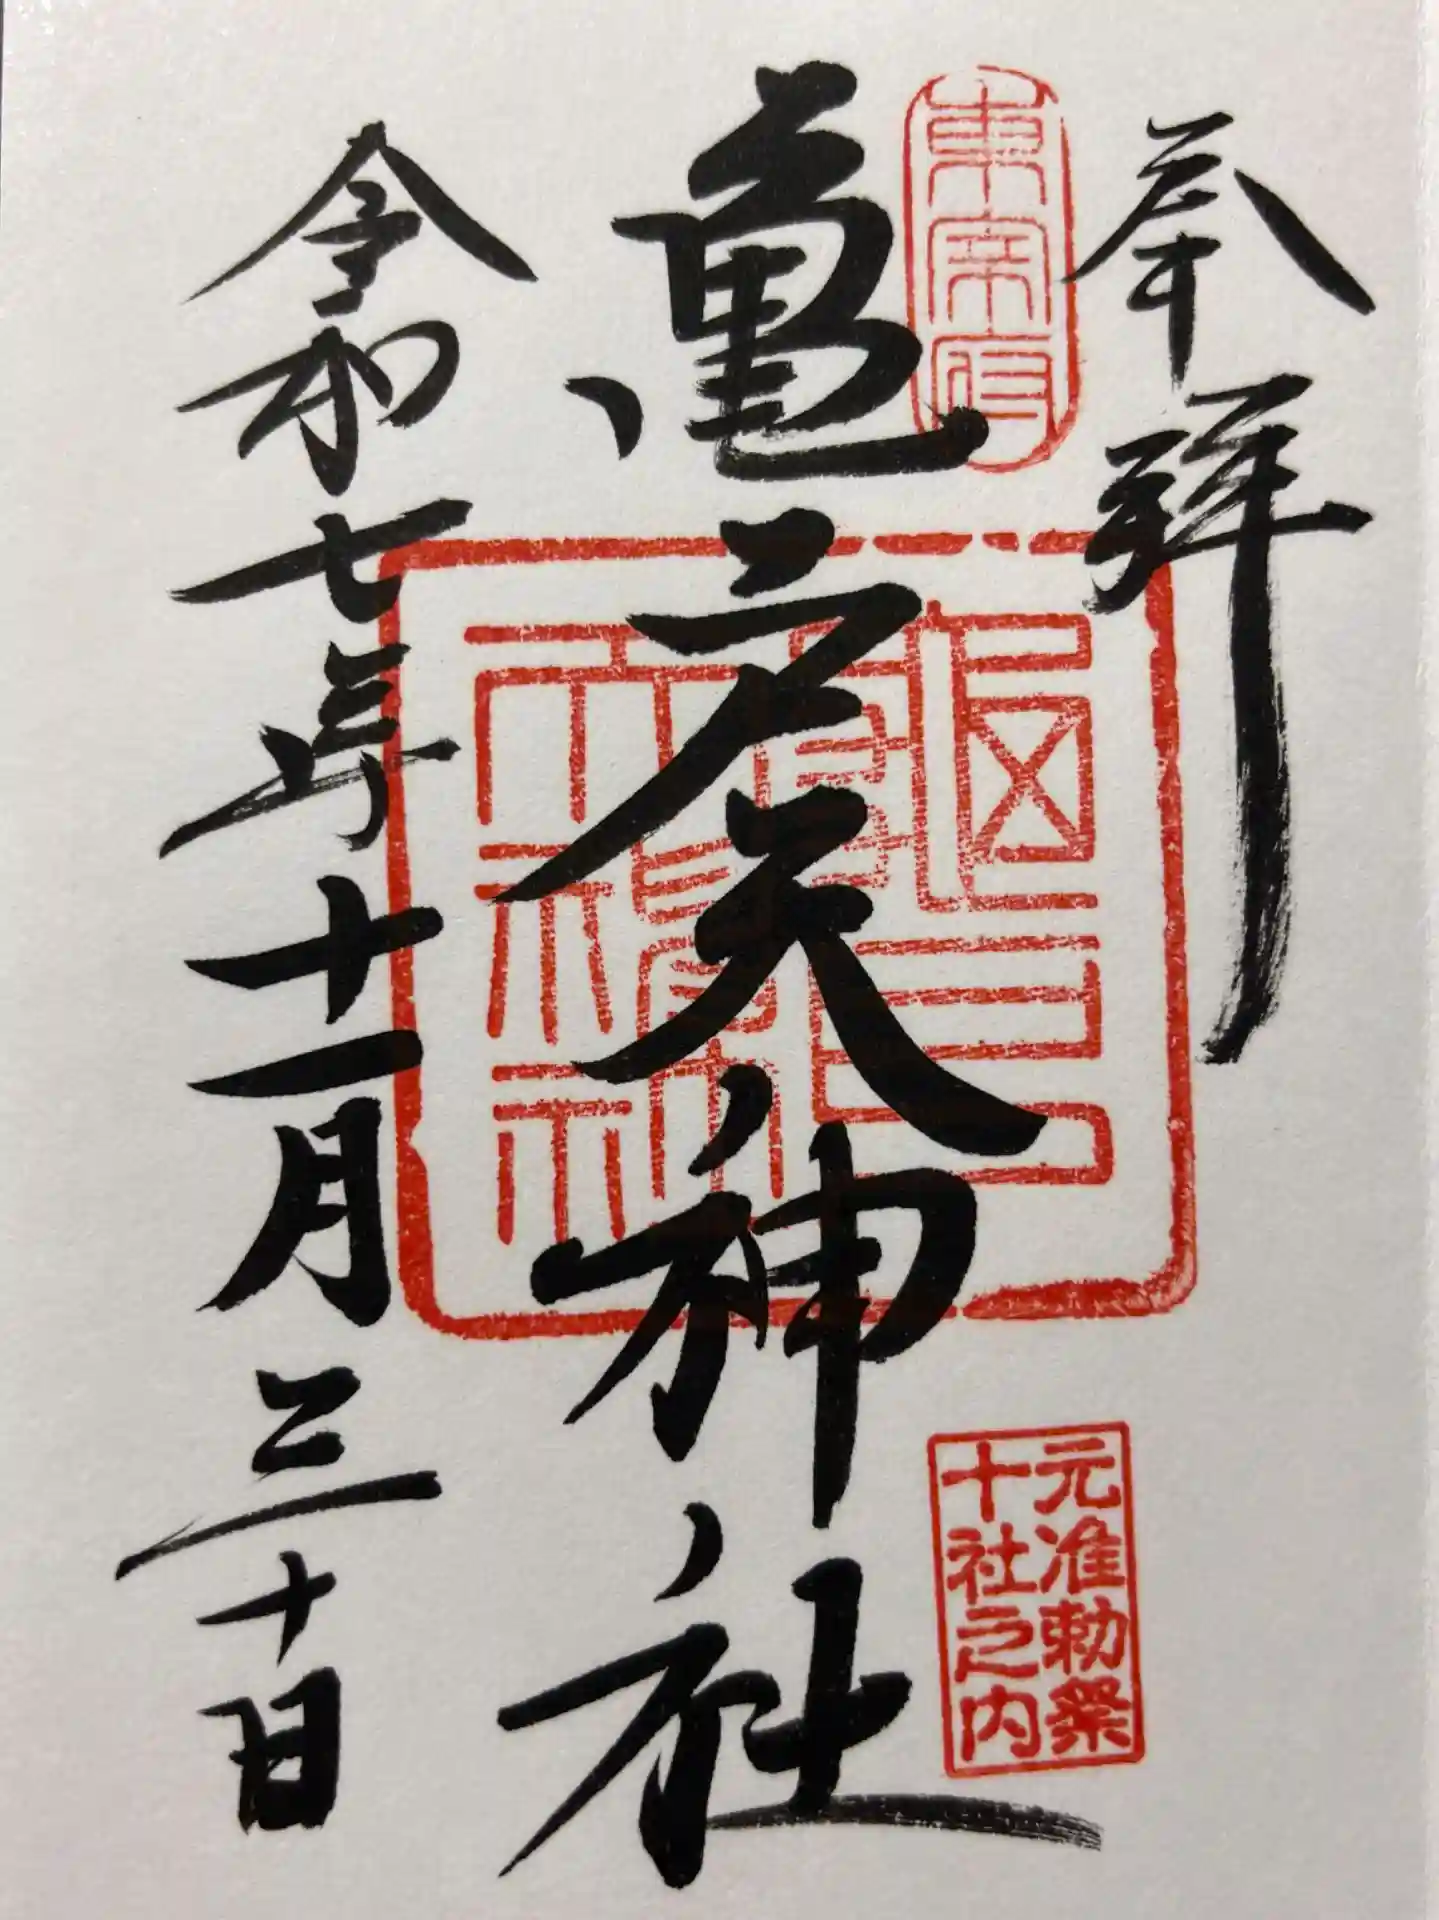 奉拝
東宰府
亀戸天神社
元准勅祭
十社之内
令和七年十一月三十日